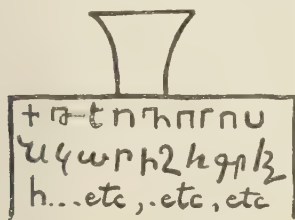 + Թ-էոդորոս
Նկարիչ և գրիչ
հ...etc, .etc, etc